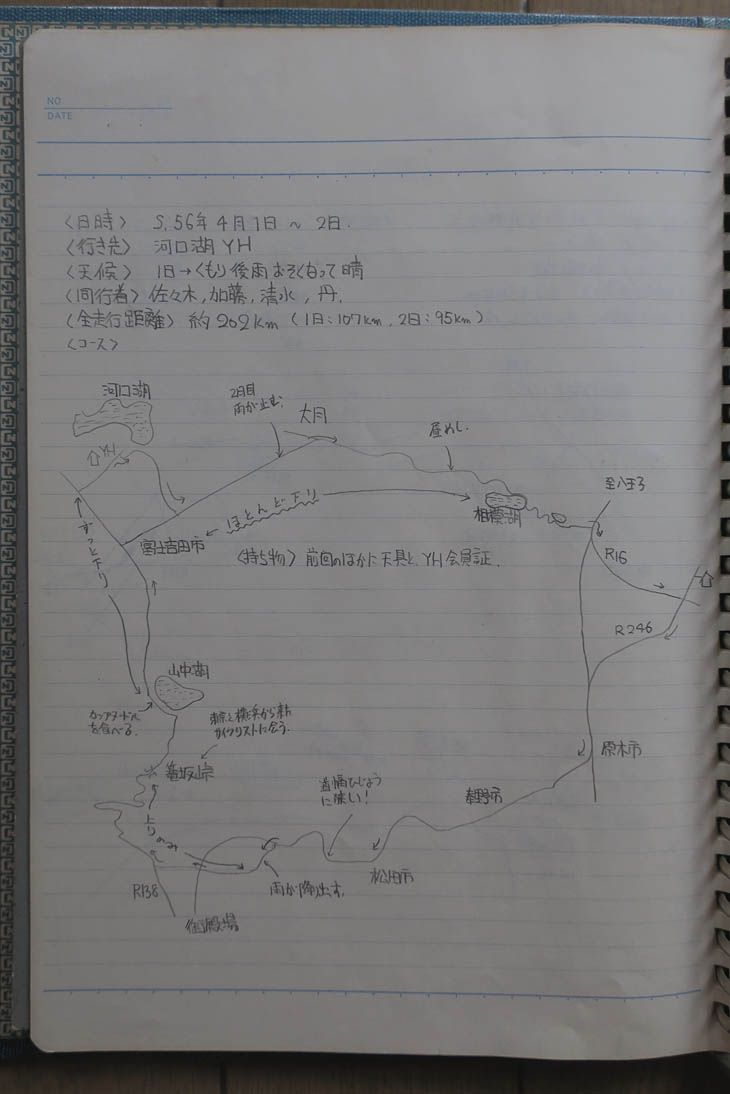 NO.
DATE
〈日時〉 S.56年4月1日～2日.
〈行き先〉 河口湖YH
〈天候〉 1日→くもり後雨おそくなって晴
〈同行者〉 佐々木,加藤,清水,丹.
〈全走行距離〉 約202km (1日:107km,2日:95km)
〈コース〉
河口湖
2日目
雨が止む.
大月
昼めし.
YH
至八王子
相模湖
ほとんど下り
富士吉田市
ずっと下り
〈持ち物〉 前回のほかに天具と,YH会員証.
R16
R246
山中湖
カップヌードル
を食べる.
東京と横浜から来た
サイクリストに会う.
篭坂峠
厚木市
道幅ひじょう
に狭い!
秦野市
上りのみ
松田市
雨が降出す.
R138
御殿場